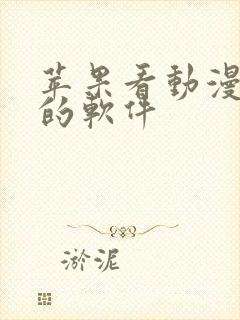 苹果看動漫
的軟件
淤泥